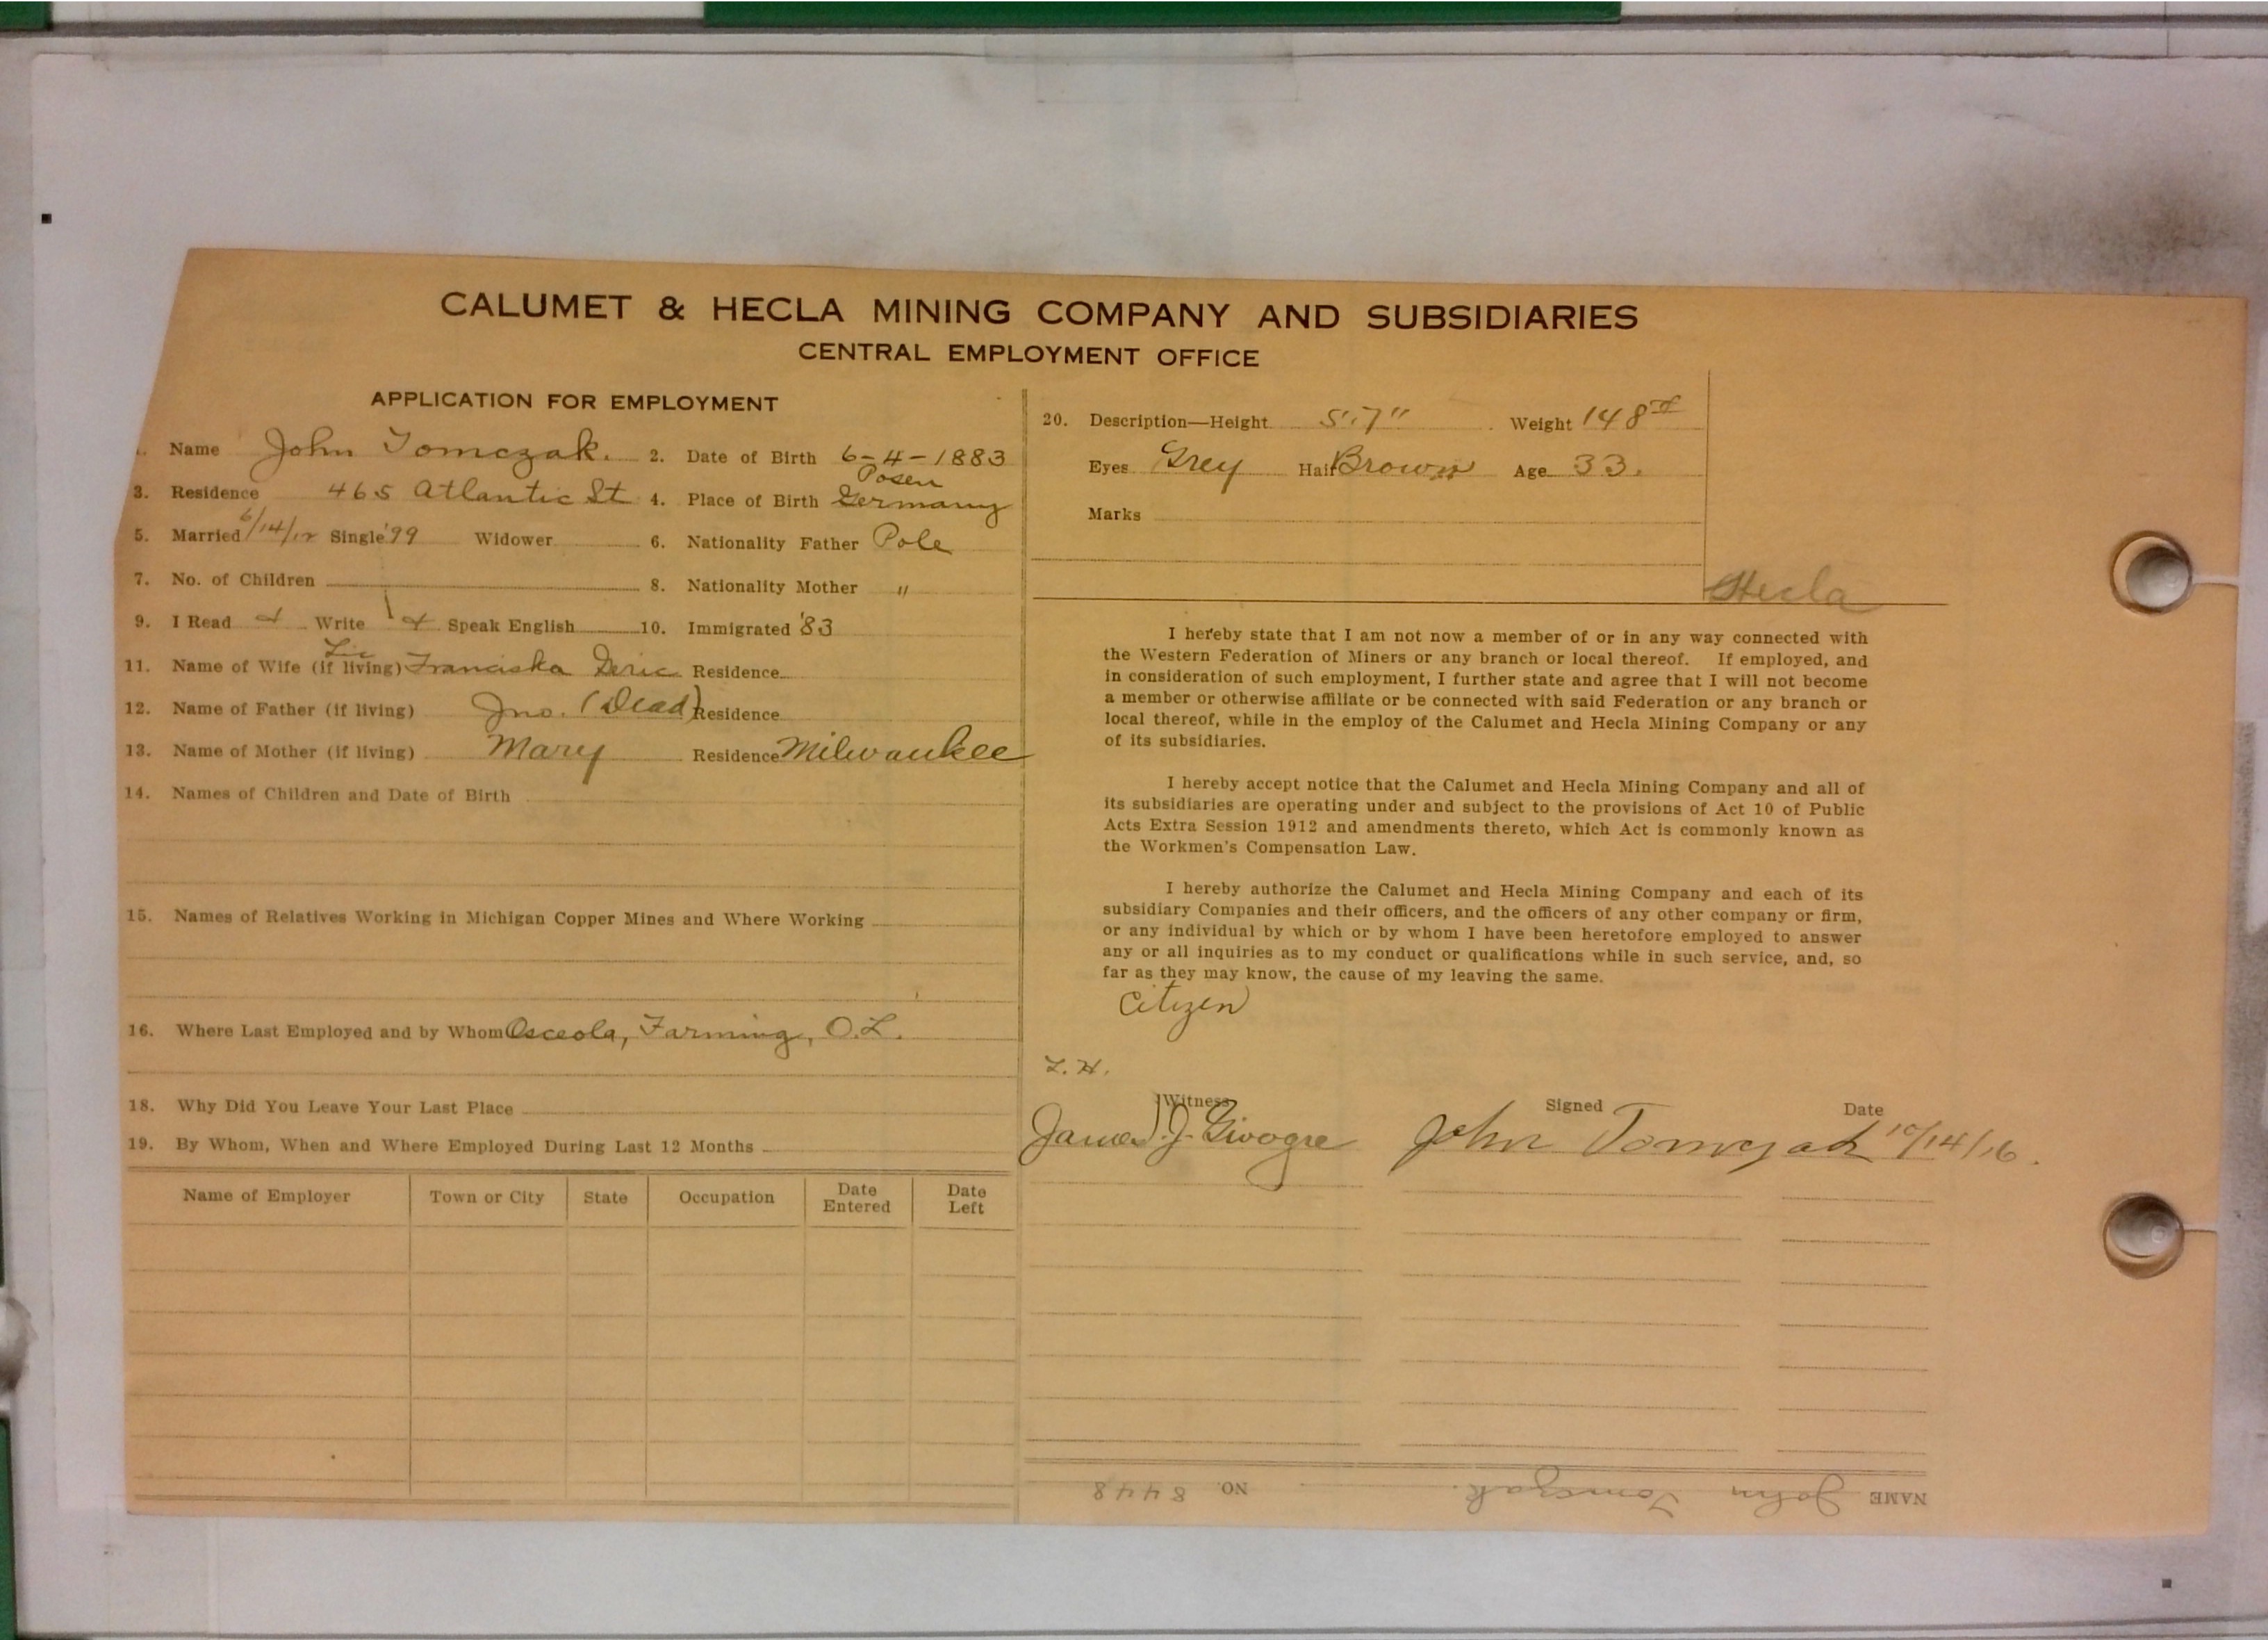 CALUMET & HECLA MINING COMPANY AND SUBSIDIARIES
CENTRAL EMPLOYMENT OFFICE
APPLICATION FOR EMPLOYMENT
1. Name John Tomczak. 2. Date of Birth 6-4-1883
3. Residence 465 Atlantic St 4. Place of Birth Posen Germany
5. Married 6/14/12 Single '99 Widower 6. Nationality Father Pole
7. No. of Children 8. Nationality Mother "
9. I Read & Write & Speak English 10. Immigrated '83
11. Name of Wife (if living) Franciska Residence
12. Name of Father (if living) Jno. (Dead) Residence
13. Name of Mother (if living) Mary Residence Milwaukee
14. Names of Children and Date of Birth
15. Names of Relatives Working in Michigan Copper Mines and Where Working
16. Where Last Employed and by Whom Osceola, Farming, O.L.
18. Why Did You Leave Your Last Place
19. By Whom, When and Where Employed During Last 12 Months
Name of Employer Town or City State Occupation Date Entered Date Left
20. Description—Height 5'.7" Weight 148#
Eyes Grey Hair Brown Age 33.
Marks
Hecla
I hereby state that I am not now a member of or in any way connected with
the Western Federation of Miners or any branch or local thereof. If employed, and
in consideration of such employment, I further state and agree that I will not become
a member or otherwise affiliate or be connected with said Federation or any branch or
local thereof, while in the employ of the Calumet and Hecla Mining Company or any
of its subsidiaries.
I hereby accept notice that the Calumet and Hecla Mining Company and all of
its subsidiaries are operating under and subject to the provisions of Act 10 of Public
Acts Extra Session 1912 and amendments thereto, which Act is commonly known as
the Workmen's Compensation Law.
I hereby authorize the Calumet and Hecla Mining Company and each of its
subsidiary Companies and their officers, and the officers of any other company or firm,
or any individual by which or by whom I have been heretofore employed to answer
any or all inquiries as to my conduct or qualifications while in such service, and, so
far as they may know, the cause of my leaving the same.
Citizen
Witness Signed Date
James J. John Tomczak 10/14/16.
NAME John Tomczak. NO. 8448